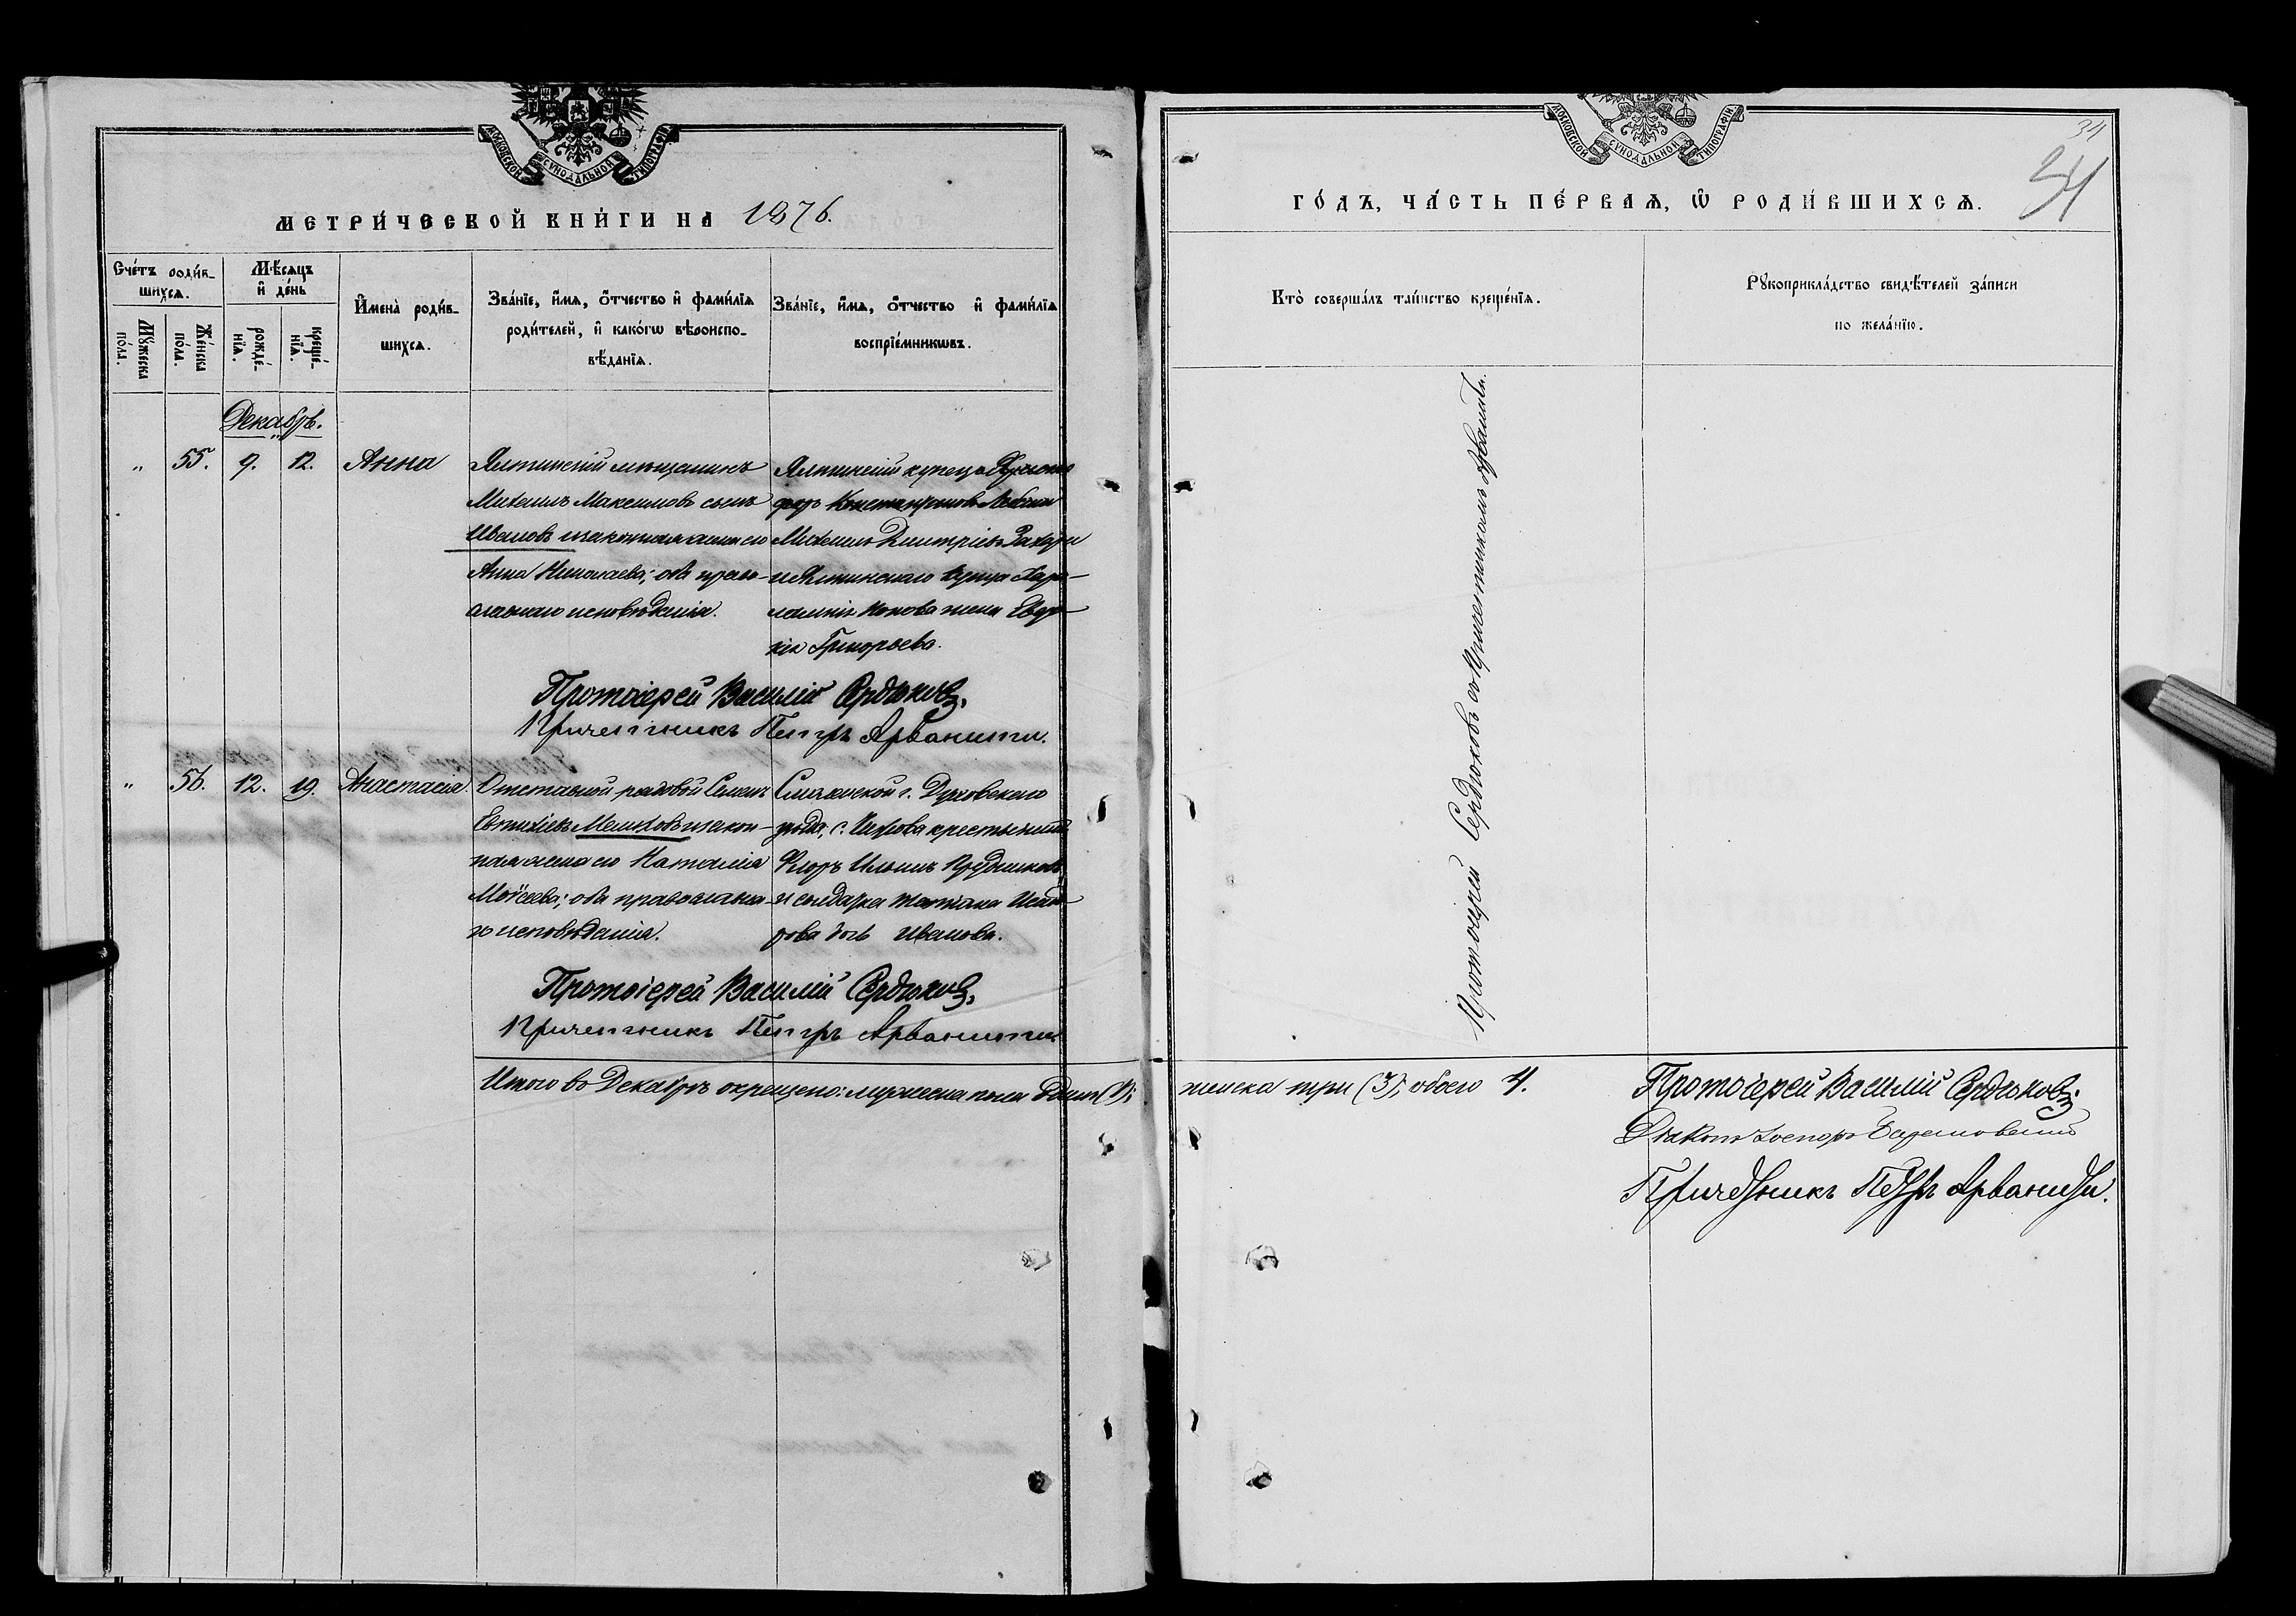 МОСКОВСКОЙ СѴНОДАЛЬНОЙ ТИПОГРАФІИ
МЕТРИ́ЧЕСКОЙ КНИ́ГИ НА 1876.
Сче́тъ роди́в-
шихсѧ.
Мꙋ́жеска
по́ла.
Же́нска
по́ла.
Мѣ́сѧцъ
и҆ де́нь
рожде́-
нїѧ.
креще́-
нїѧ.
И҆мена̀ роди́в-
шихсѧ.
Зва́нїе, и҆́мѧ, ѻ҆́тчество и҆ фами́лїѧ
роди́телей, и҆ како́гѡ вѣроиспо-
вѣ́данїѧ.
Зва́нїе, и҆́мѧ, ѻ҆́тчество и҆ фами́лїѧ
воспрїе́мникѡвъ.
Декабрь.
" 55. 9. 12. Анна
Ялтинскій мѣщанинъ
Михаилъ Максимовъ сынъ
Ивановъ и законная жена его
Анна Николаева; оба право-
славнаго исповѣданія.
Ялтинскій купецъ
Константиновъ
Михаилъ Дмитріевъ
и Ялтинскаго купца Хара-
лампія Попова жена Евдо-
кія Григорьева.
Протоіерей Василій Сердюковъ.
Причетникъ Петръ Арванити.
" 56. 12. 19. Анастасія
Отставной рядовой Семенъ
Евтихіевъ Мешковъ и закон-
ная жена его Наталія
Моѵсеева; оба православна-
го исповѣданія.
Смоленской г. Духовскаго
уѣзда, с. крестьянинъ
Флоръ Ильинъ
и солдатка Татіана Исидо-
рова дочь Иванова.
Протоіерей Василій Сердюковъ.
Причетникъ Петръ Арванити.
Итого въ Декабрѣ окрещено: мужеска пола одинъ (1);
МОСКОВСКОЙ СѴНОДАЛЬНОЙ ТИПОГРАФІИ
34
34
ГО́ДЪ, ЧА́СТЬ ПЕ́РВАѦ, Ѡ҆ РОДИ́ВШИХСѦ.
Кто̀ соверша́лъ та́инство креще́нїѧ.
Рꙋкоприкла́дство свидѣ́телей за́писи
по жела́нїю.
Протоіерей Сердюковъ съ причетникомъ Арванити.
женска три (3); обоего 4.
Протоіерей Василій Сердюковъ.
Діаконъ
Причетникъ Петръ Арванити.